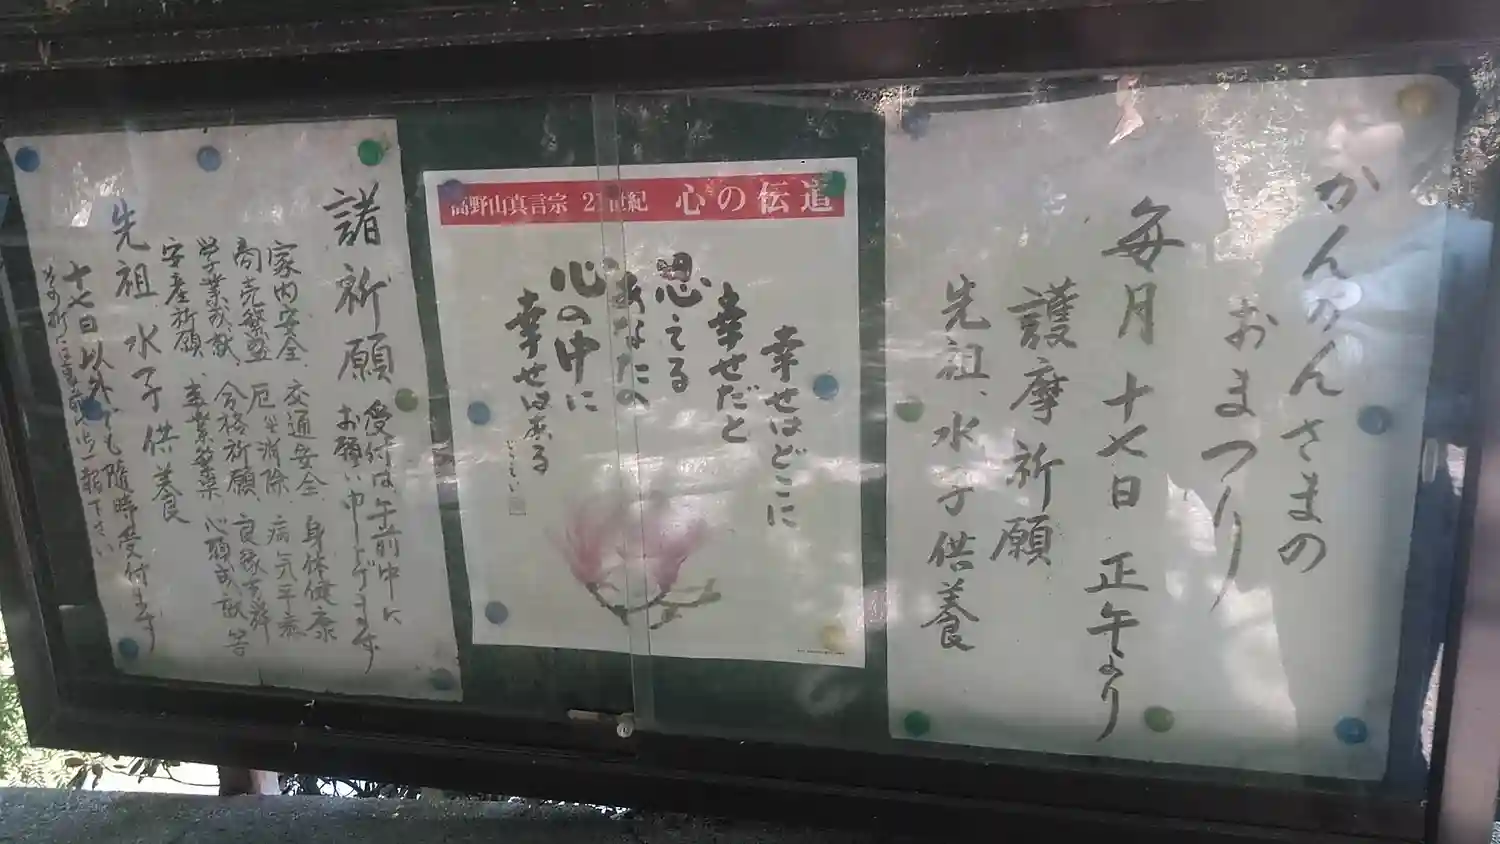 かんかんさまの
おまつり
毎月十七日 正午より
護摩祈願
先祖、水子供養
高野山真言宗 21世紀 心の伝道
幸せはどこに
幸せだと
思える
あなたの
心の中に
幸せは来る
諸祈願 受付は午前中に
お願い申し上げます
家内安全、交通安全、身体健康
商売繁盛、厄生消除、病気平癒
学業成就、合格祈願、良縁
安産祈願、業繁栄、心願成就等
先祖水子供養
十七日以外でも随時受付ます
下さい